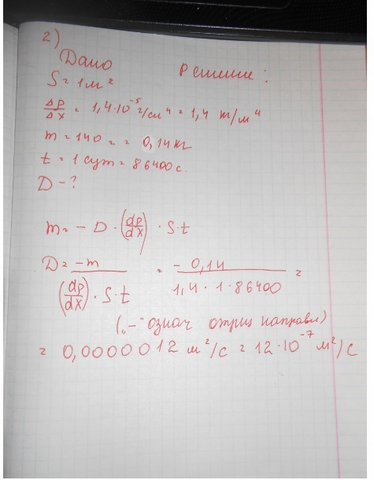 2)
Дано Решение:
S = 1 м²
Δρ/Δx = 1,4·10⁻⁵ г/см⁴ = 1,4 т/м⁴
m = 140 = = 0,14 кг
t = 1 сут = 86400 с.
D - ?
m = - D · (dρ/dx) · S · t
D = -m / (dρ/dx) · S · t = - 0,14 / 1,4 · 1 · 86400 =
(„-" означ отриц направл)
= 0,0000012 м²/с = 12·10⁻⁷ м²/с